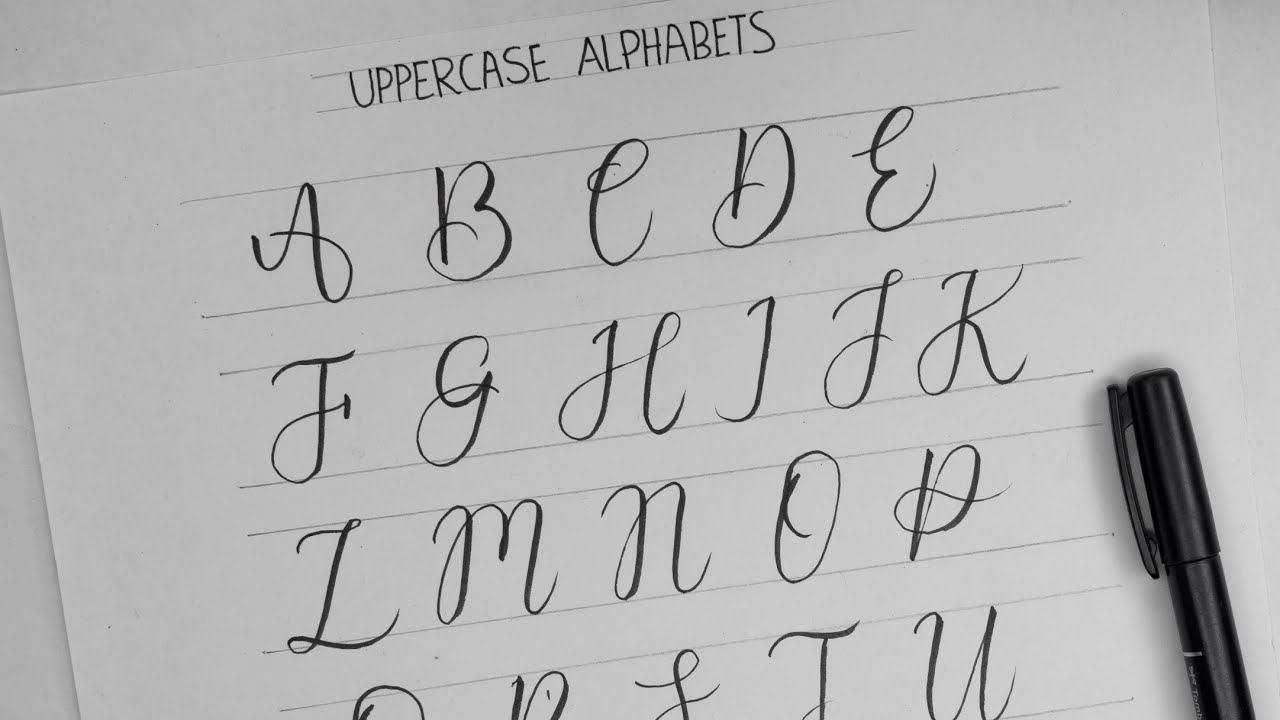 UPPERCASE ALPHABETS
A B C D E
F G H I J K
L M N O P
Q R S T U